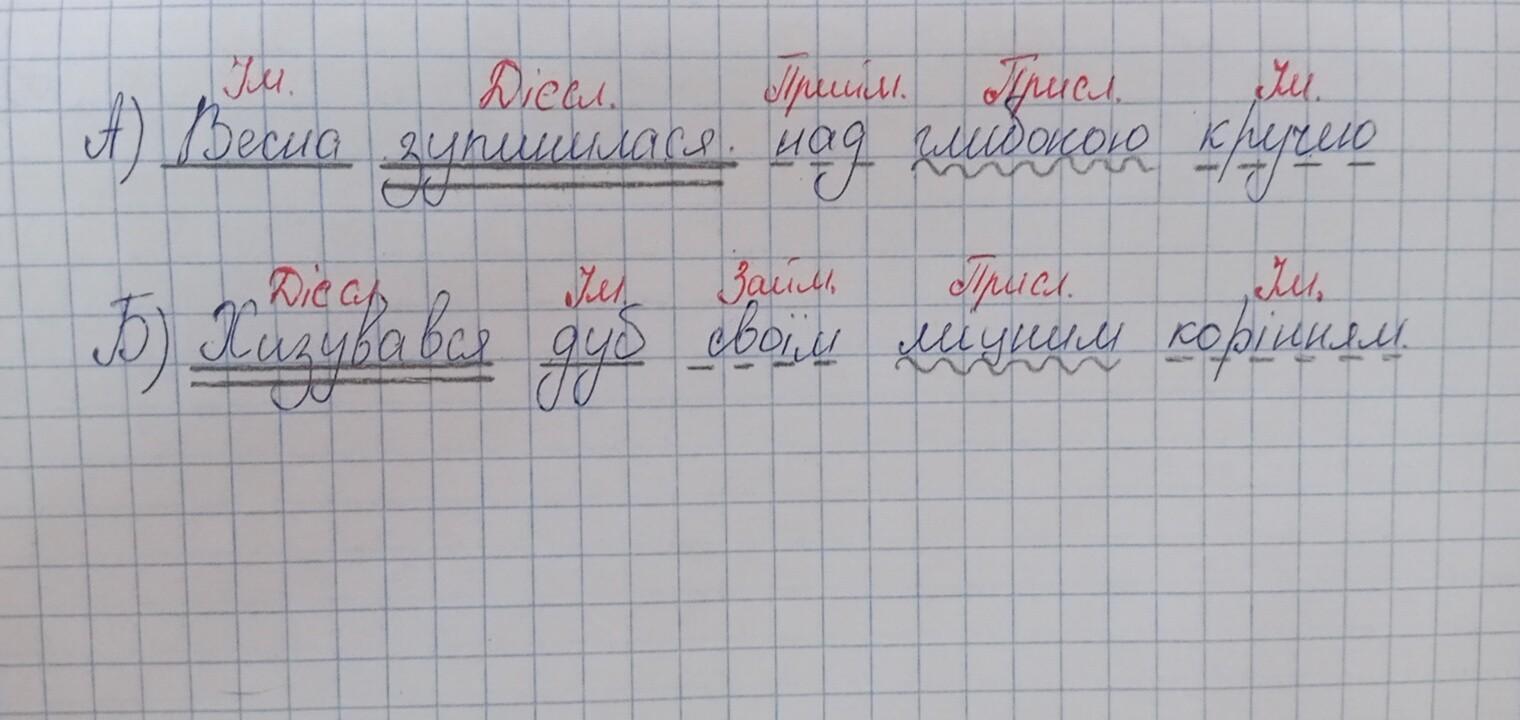 Ім. Дієсл. Прийм. Присл. Ім.
А) Весна зупинилася над глибокою кручею
Дієсл. Ім. Займ. Присл. Ім.
Б) Хизувався дуб своїм міцним корінням.